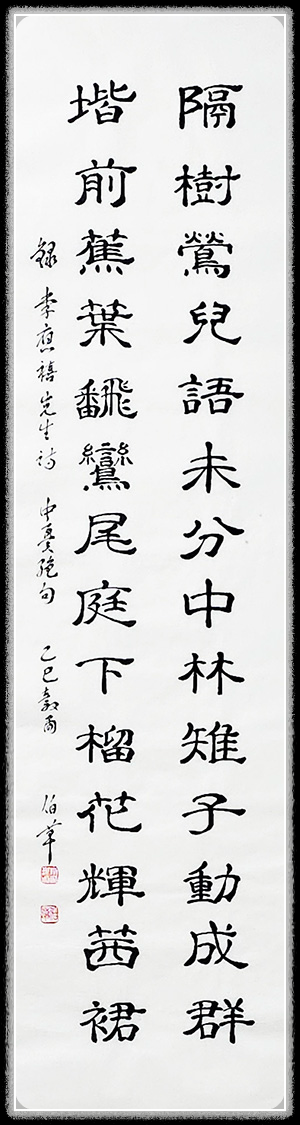 隔樹鶯兒語未分中林雉子動成群
堦前蕉葉飜鸞尾庭下榴花輝茜裙
錄李應禧先生詩中夏絶句 乙巳穀雨 伯華